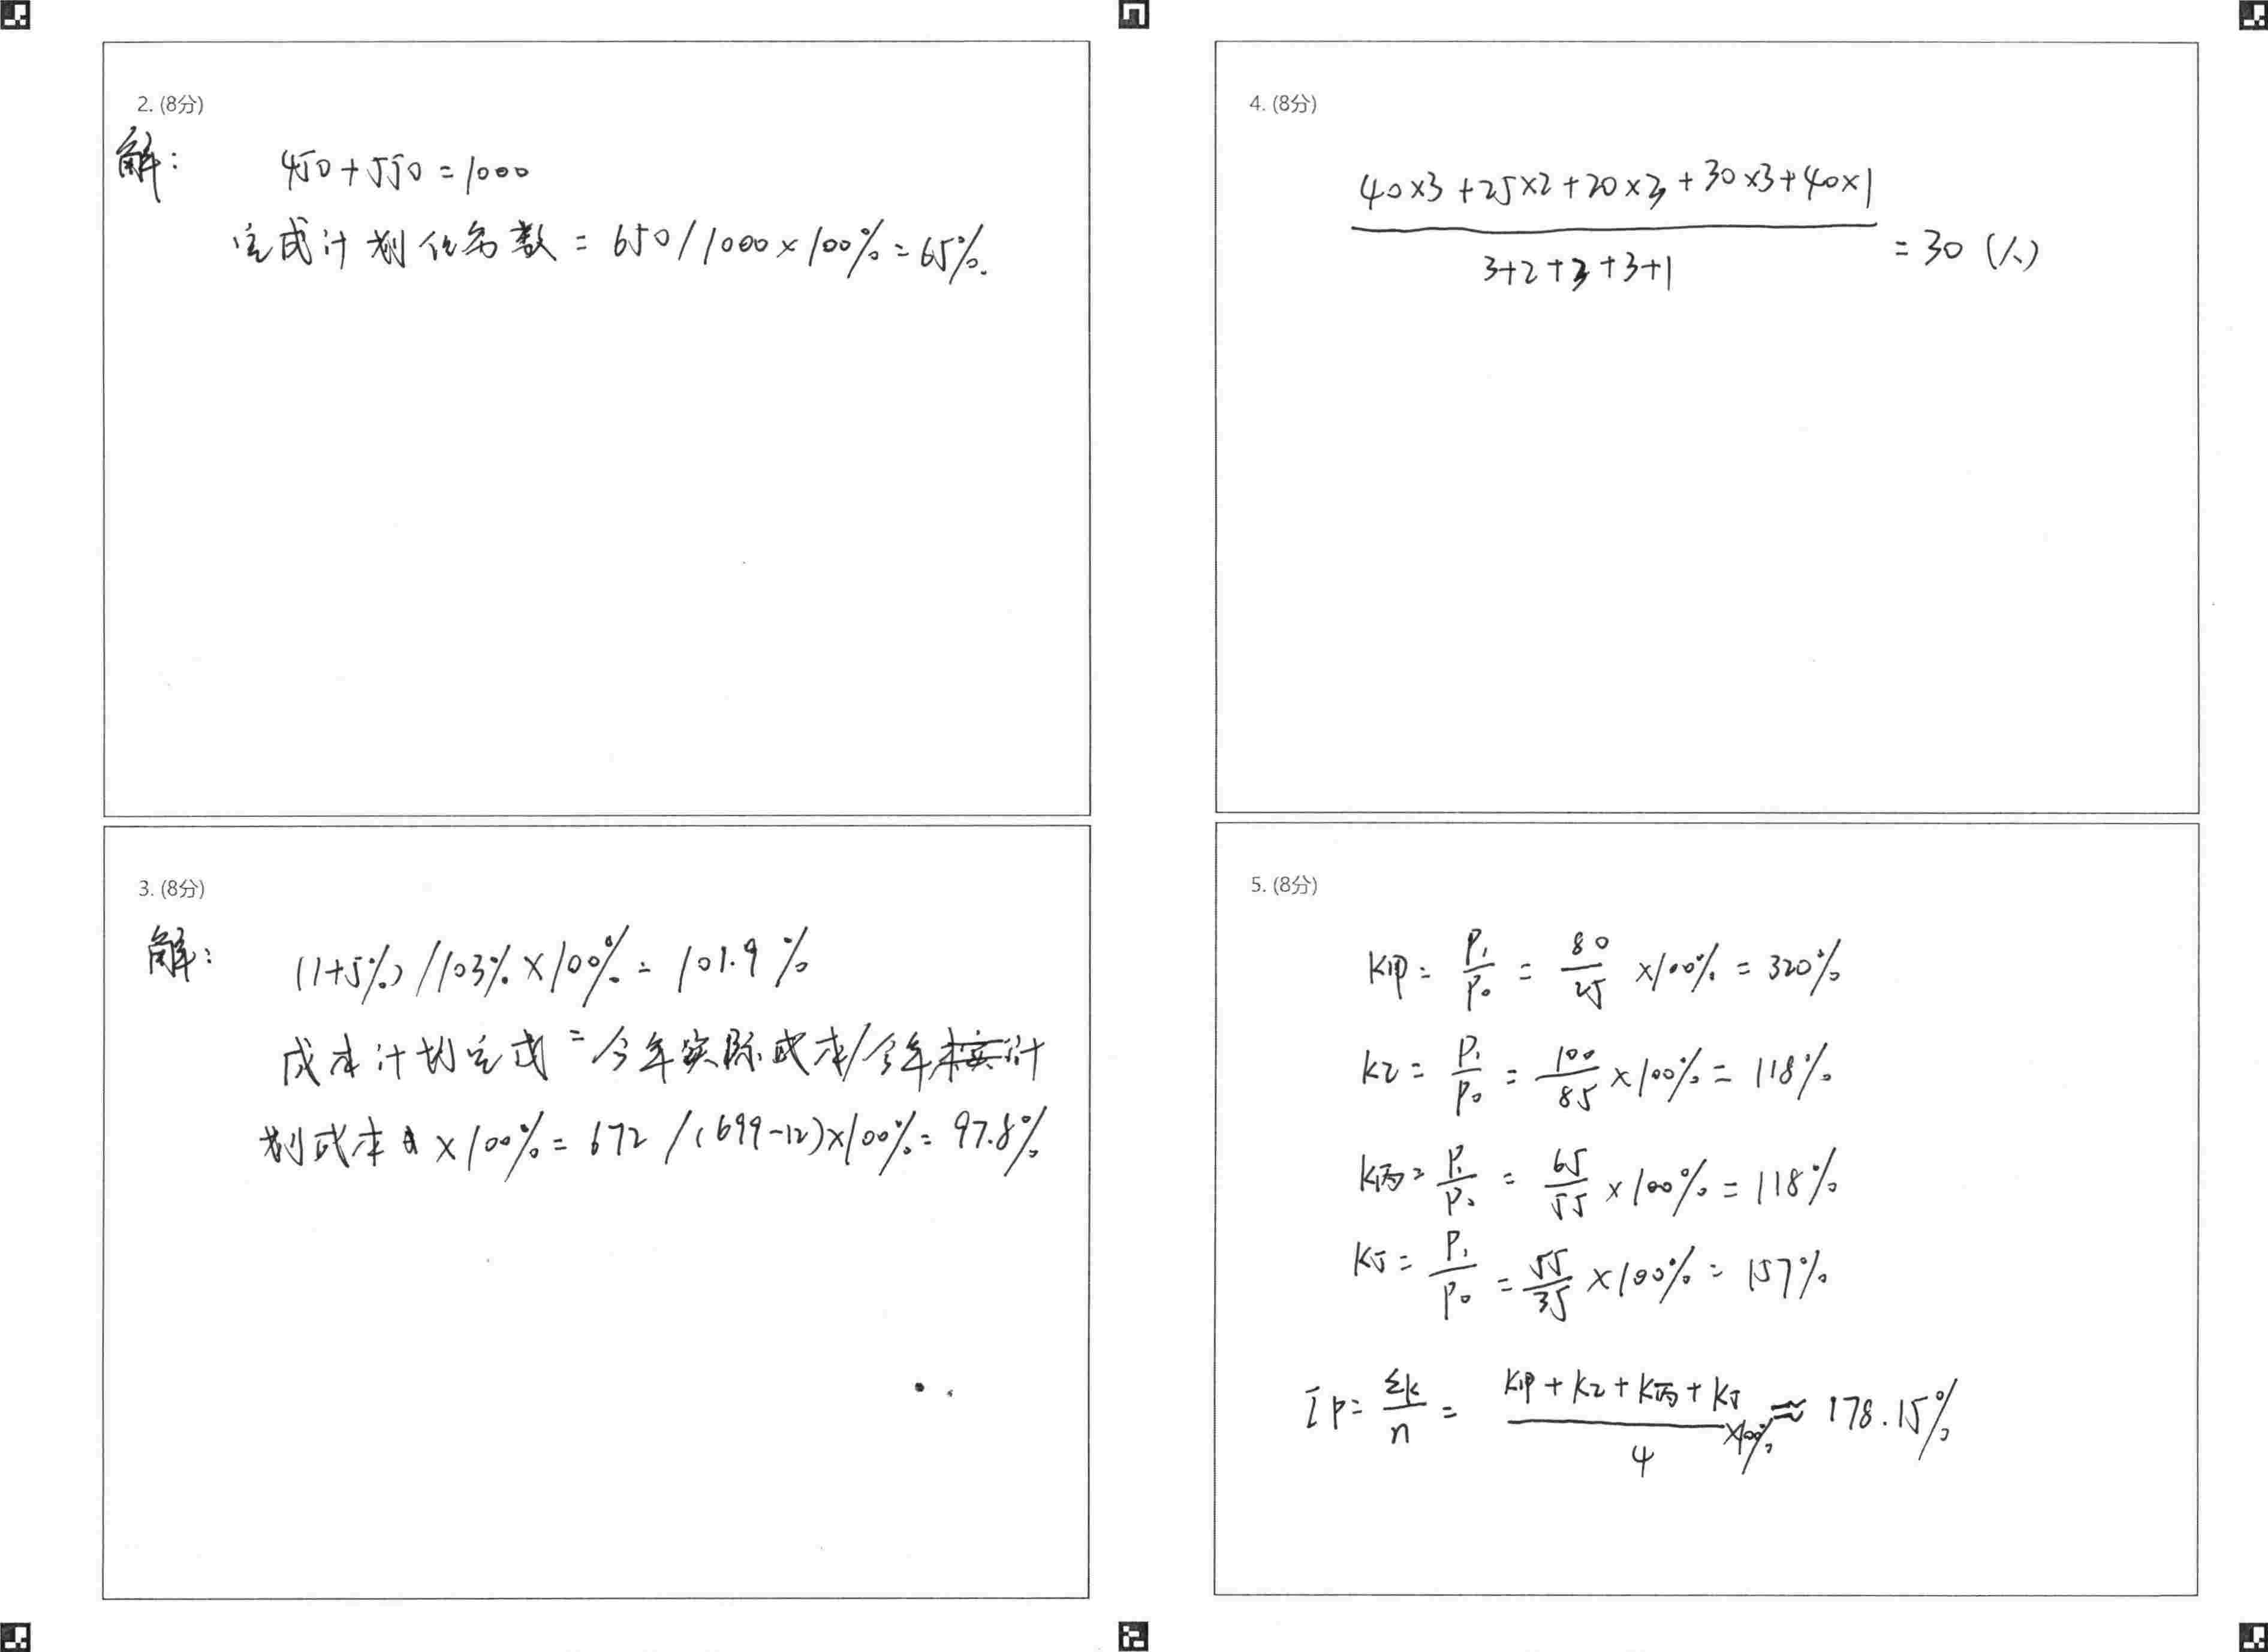 2. (8分)
解:
450+550=1000
完成计划任务数=650/1000×100%=65%.
3. (8分)
解:
(1+5%)/103%×100%=101.9%
成本计划完成=今年实际成本/今年计
划成本×100%=672/(699-12)×100%=97.8%
4. (8分)
40×3+25×2+20×3+30×3+40×1
3+2+3+3+1
=30(人)
5. (8分)
K甲=P₁/P₀=80/25×100%=320%
K乙=P₁/P₀=100/85×100%=118%
K丙=P₁/P₀=65/55×100%=118%
K丁=P₁/P₀=55/35×100%=157%
Ip=Σk/n=K甲+K乙+K丙+K丁/4×100%≈178.15%